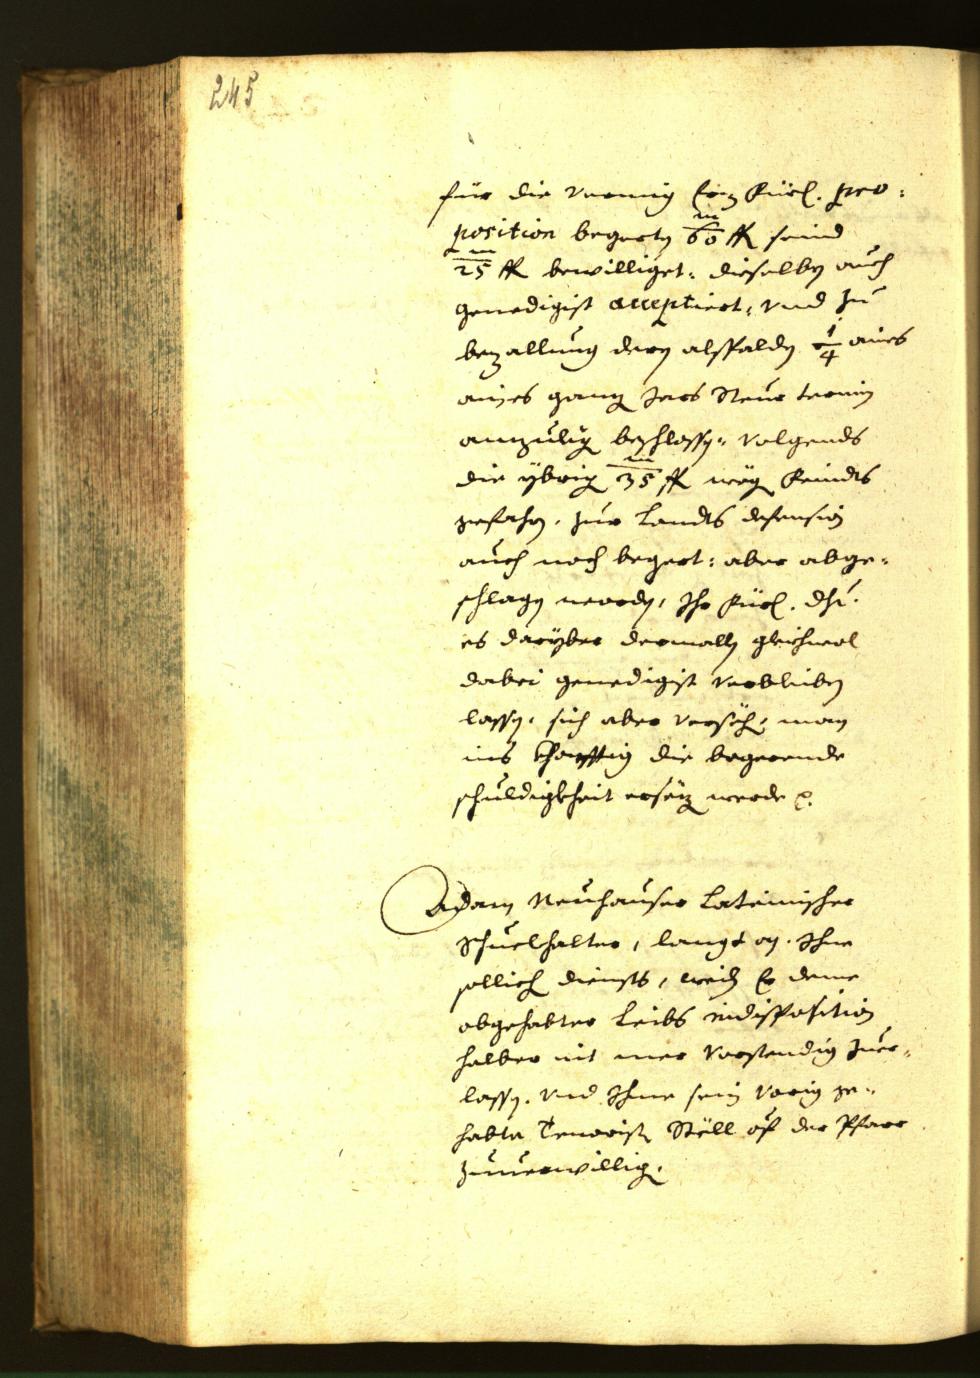 245
für die vermig Irer Fürl. pro-
position begerte 60 m fl seind
25 m fl bewilliget, dieselben auch
genedigist acceptiert, vnd zu
bezallung deren alßbalden 1/4 aines
aines ganz Jars Steur termin
anzulegen beschlossen. volgends
die ybrigen 35 m fl wegen Feindts
gefahr, zur Landts defension
auch noch begert: aber abge-
schlagen worden, Ihr Fürl. Dht.
es darüber dermallen gleichwol
dabei genedigist verbleiben
lassen, sich aber versehen, man
ins khonfftig die begerende
schuldigkheit ersezen werde
Adam Neuhauser Lateinischer
Schuelhalter, langt an. Ihne
sollich diensts, weil Er deme
abgehabter Leibs indisposition
halber nit mer vorstendig zuer-
lassen, vnd Ihme sein vorig ge-
habte Tenorist Stöll auf der Pfarr
zuuerwilligen.